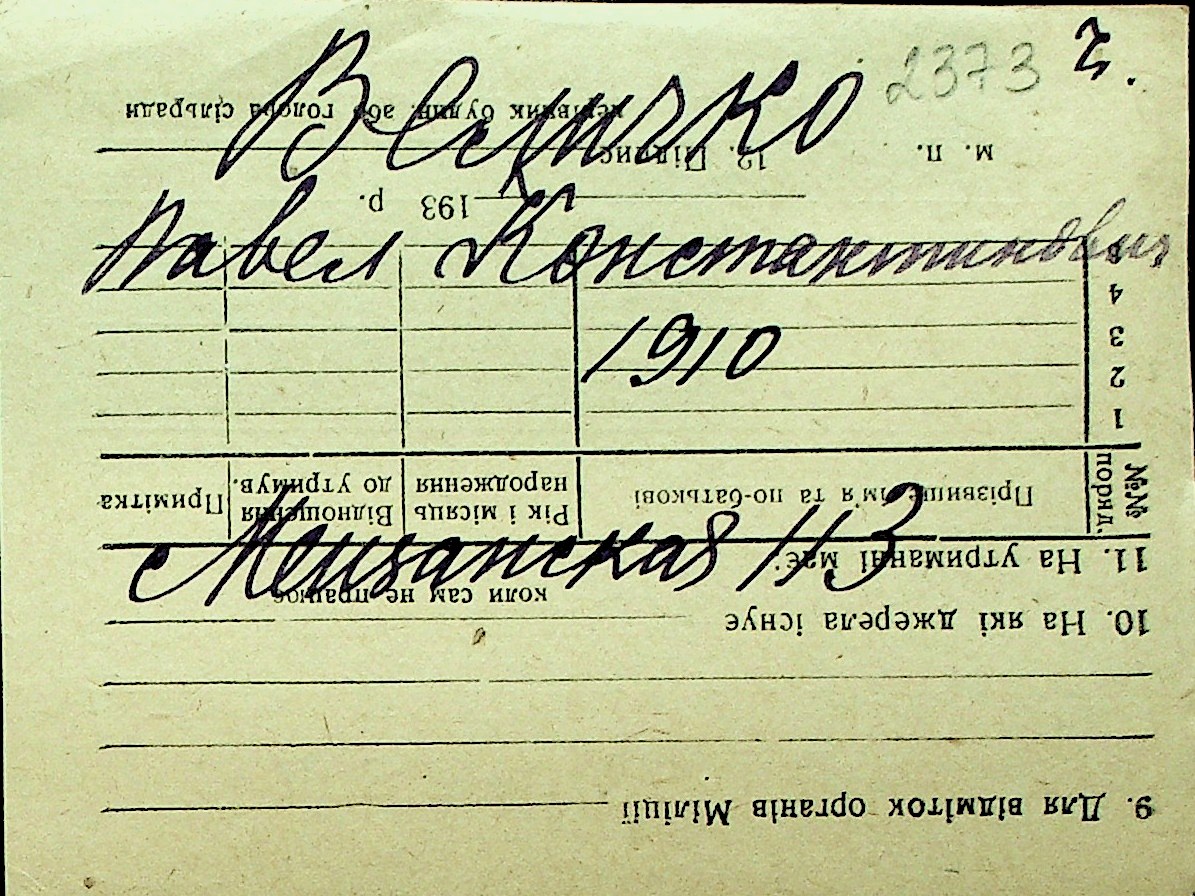 2373
Величко
Павел Константинович
1910
Мещанская 113
9. Для відміток органів Міліції
10. На які джерела існує
коли сам не працює
11. На утриманні має:
№№ поряд. Прізвище, ім'я та по-батькові Рік і місяць народження Відношення до утримув. Примітка
1
2
3
4
193 р.
м. п. 12. Підпис
керівник будин. або голова сільради